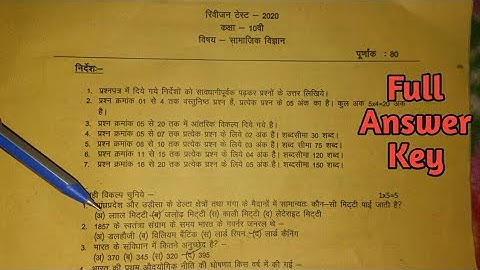 रिवीजन टेस्ट – 2020
कक्षा – 10वी
विषय – सामाजिक विज्ञान
पूर्णांक : 80
निर्देश:–
1. प्रश्नपत्र में दिये गये निर्देशों को सावधानीपूर्वक पढ़कर प्रश्नों के उत्तर लिखिये।
2. प्रश्न क्रमांक 01 से 4 तक वस्तुनिष्ठ प्रश्न हैं, प्रत्येक प्रश्न के 05 अंक का है। कुल अंक 5x4=20 अंक
है।
3. प्रश्न क्रमांक 05 से 20 तक में आंतरिक विकल्प दिये गये है।
4. प्रश्न क्रमांक 05 से 07 तक प्रत्येक प्रश्न के लिये 02 अंक है। शब्दसीमा 30 शब्द।
5. प्रश्न क्रमांक 08 से 10 तक प्रत्येक प्रश्न के लिये 03 अंक है। शब्द सीमा 75 शब्द।
6. प्रश्न क्रमांक 11 से 15 तक प्रत्येक प्रश्न के लिये 04 अंक है। शब्दसीमा 120 शब्द।
7. प्रश्न क्रमांक 16 से 20 तक प्रत्येक प्रश्न के लिये 05 अंक है। शब्दसीमा 150 शब्द।
Full
Answer
Key
सही विकल्प चुनिये – 1x5=5
1. आंध्रप्रदेश और उड़ीसा के डेल्टा क्षेत्रों तथा गंगा के मैदानों में सामान्यतः कौन–सी मिट्टी पाई जाती है?
(अ) लाल मिट्टी (ब) जलोढ़ मिट्टी (स) काली मिट्टी (द) लेटेराइट मिट्टी
2. 1857 के स्वतंत्रता संग्राम के समय भारत के गवर्नर जनरल थे –
(अ) डलहौजी (ब) विलियम बैंटिक (स) लार्ड रिपन (द) लार्ड कैनिंग
3. भारत के संविधान में कितने अनुच्छेद है?
(अ) 370 (ब) 345 (स) 320 (द) 395
4. भारत की प्रथम औद्योगिक नीति की घोषणा किस वर्ष में की गई –